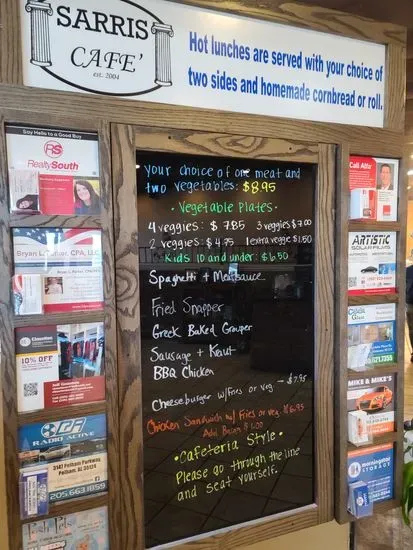 SARRIS
CAFE'
est. 2004
Hot lunches are served with your choice of
two sides and homemade cornbread or roll.
Say Hello to a Good Buy
RS
RealtySouth
CPA, LLC
10% OFF
RADIO ACTIVE
3143 Pelham Parkway
Pelham, AL 35124
205.663.1859
your choice of one meat and
two vegetables: $8.95
• Vegetable Plates •
4 veggies: $7.85 3 veggies $7.00
2 veggies: $4.75 1 extra veggie $1.50
Kids 10 and under: $6.50
Spaghetti + Meatsauce
Fried Snapper
Greek Baked Grouper
Sausage + Kraut
BBQ Chicken
Cheeseburger w/fries or veg - $7.95
Chicken Sandwich w/ Fries or veg. $6.95
Add Bacon $1.00
• Cafeteria Style •
Please go through the line
and seat yourself.
Call Alfa
ARTISTIC
SOLAR FILMS
Glass
MIKE & MIKE'S
morningstar
STORAGE